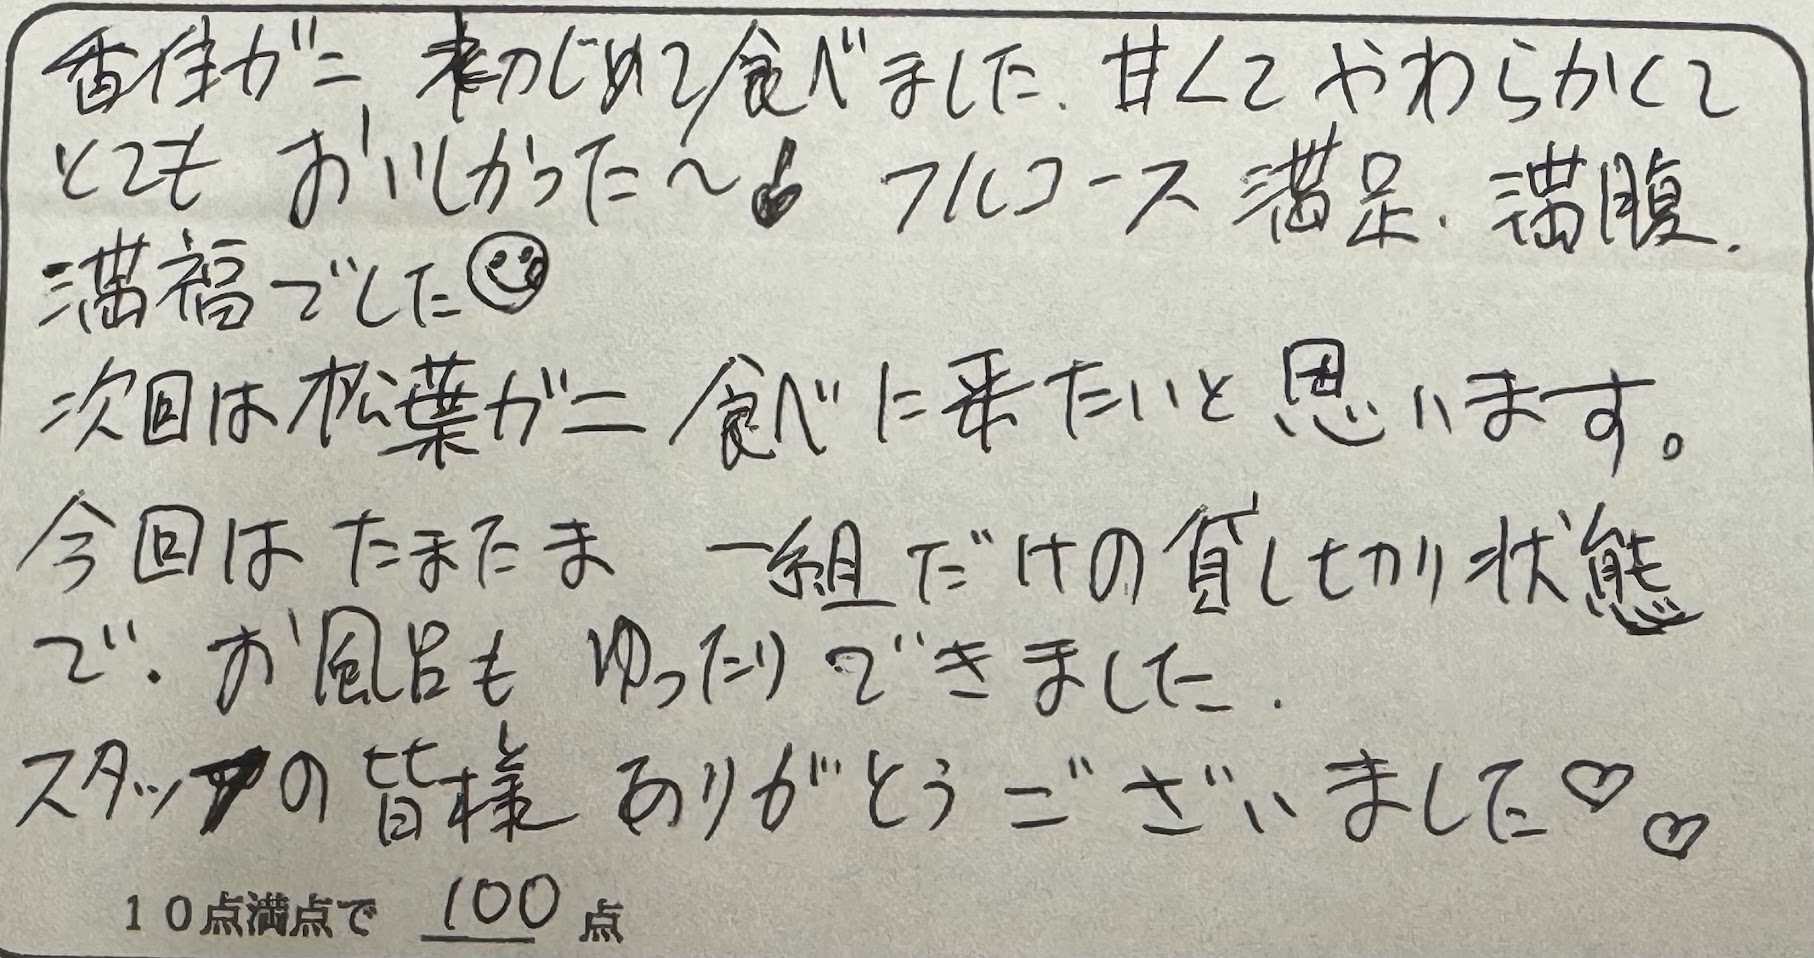 香住ガニ 初めて食べました. 甘くてやわらかくて
とても おいしかった〜 フルコース 満足. 満腹.
満福でした
次回は松葉ガニ 食べに来たいと思います。
今回は たまたま 一組だけの貸し切り状態
で. お風呂も ゆったりできました.
スタッフの皆様 ありがとうございました♡♡
10点満点で 100 点